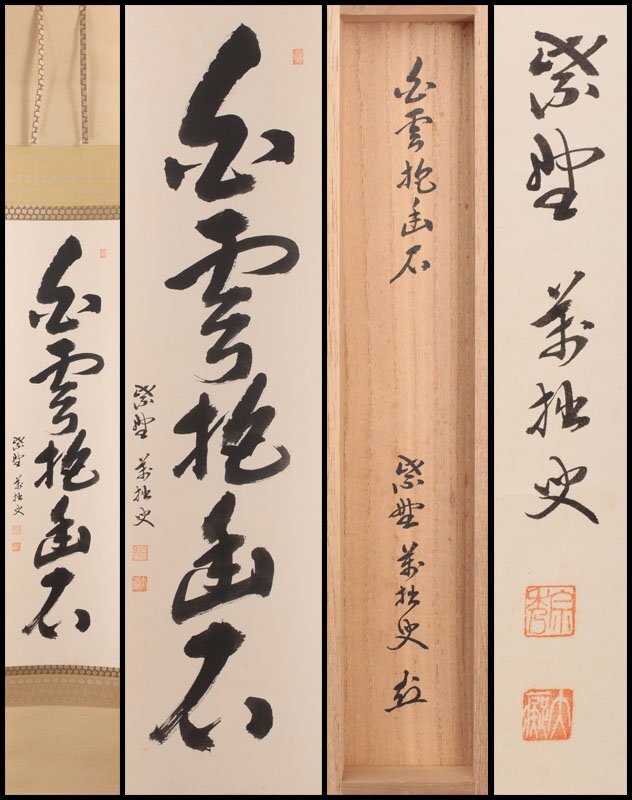 白雲抱幽石
紫野 萬拙叟
白雲抱幽石
紫野 萬拙叟
白雲抱幽石
紫野 萬拙叟
紫野 萬拙叟
宗秀